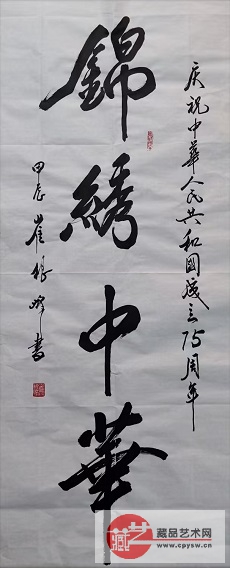 庆祝中華人民共和國成立75周年
錦綉中華
甲辰崔 书
藏品艺术网
www.cpysw.cn